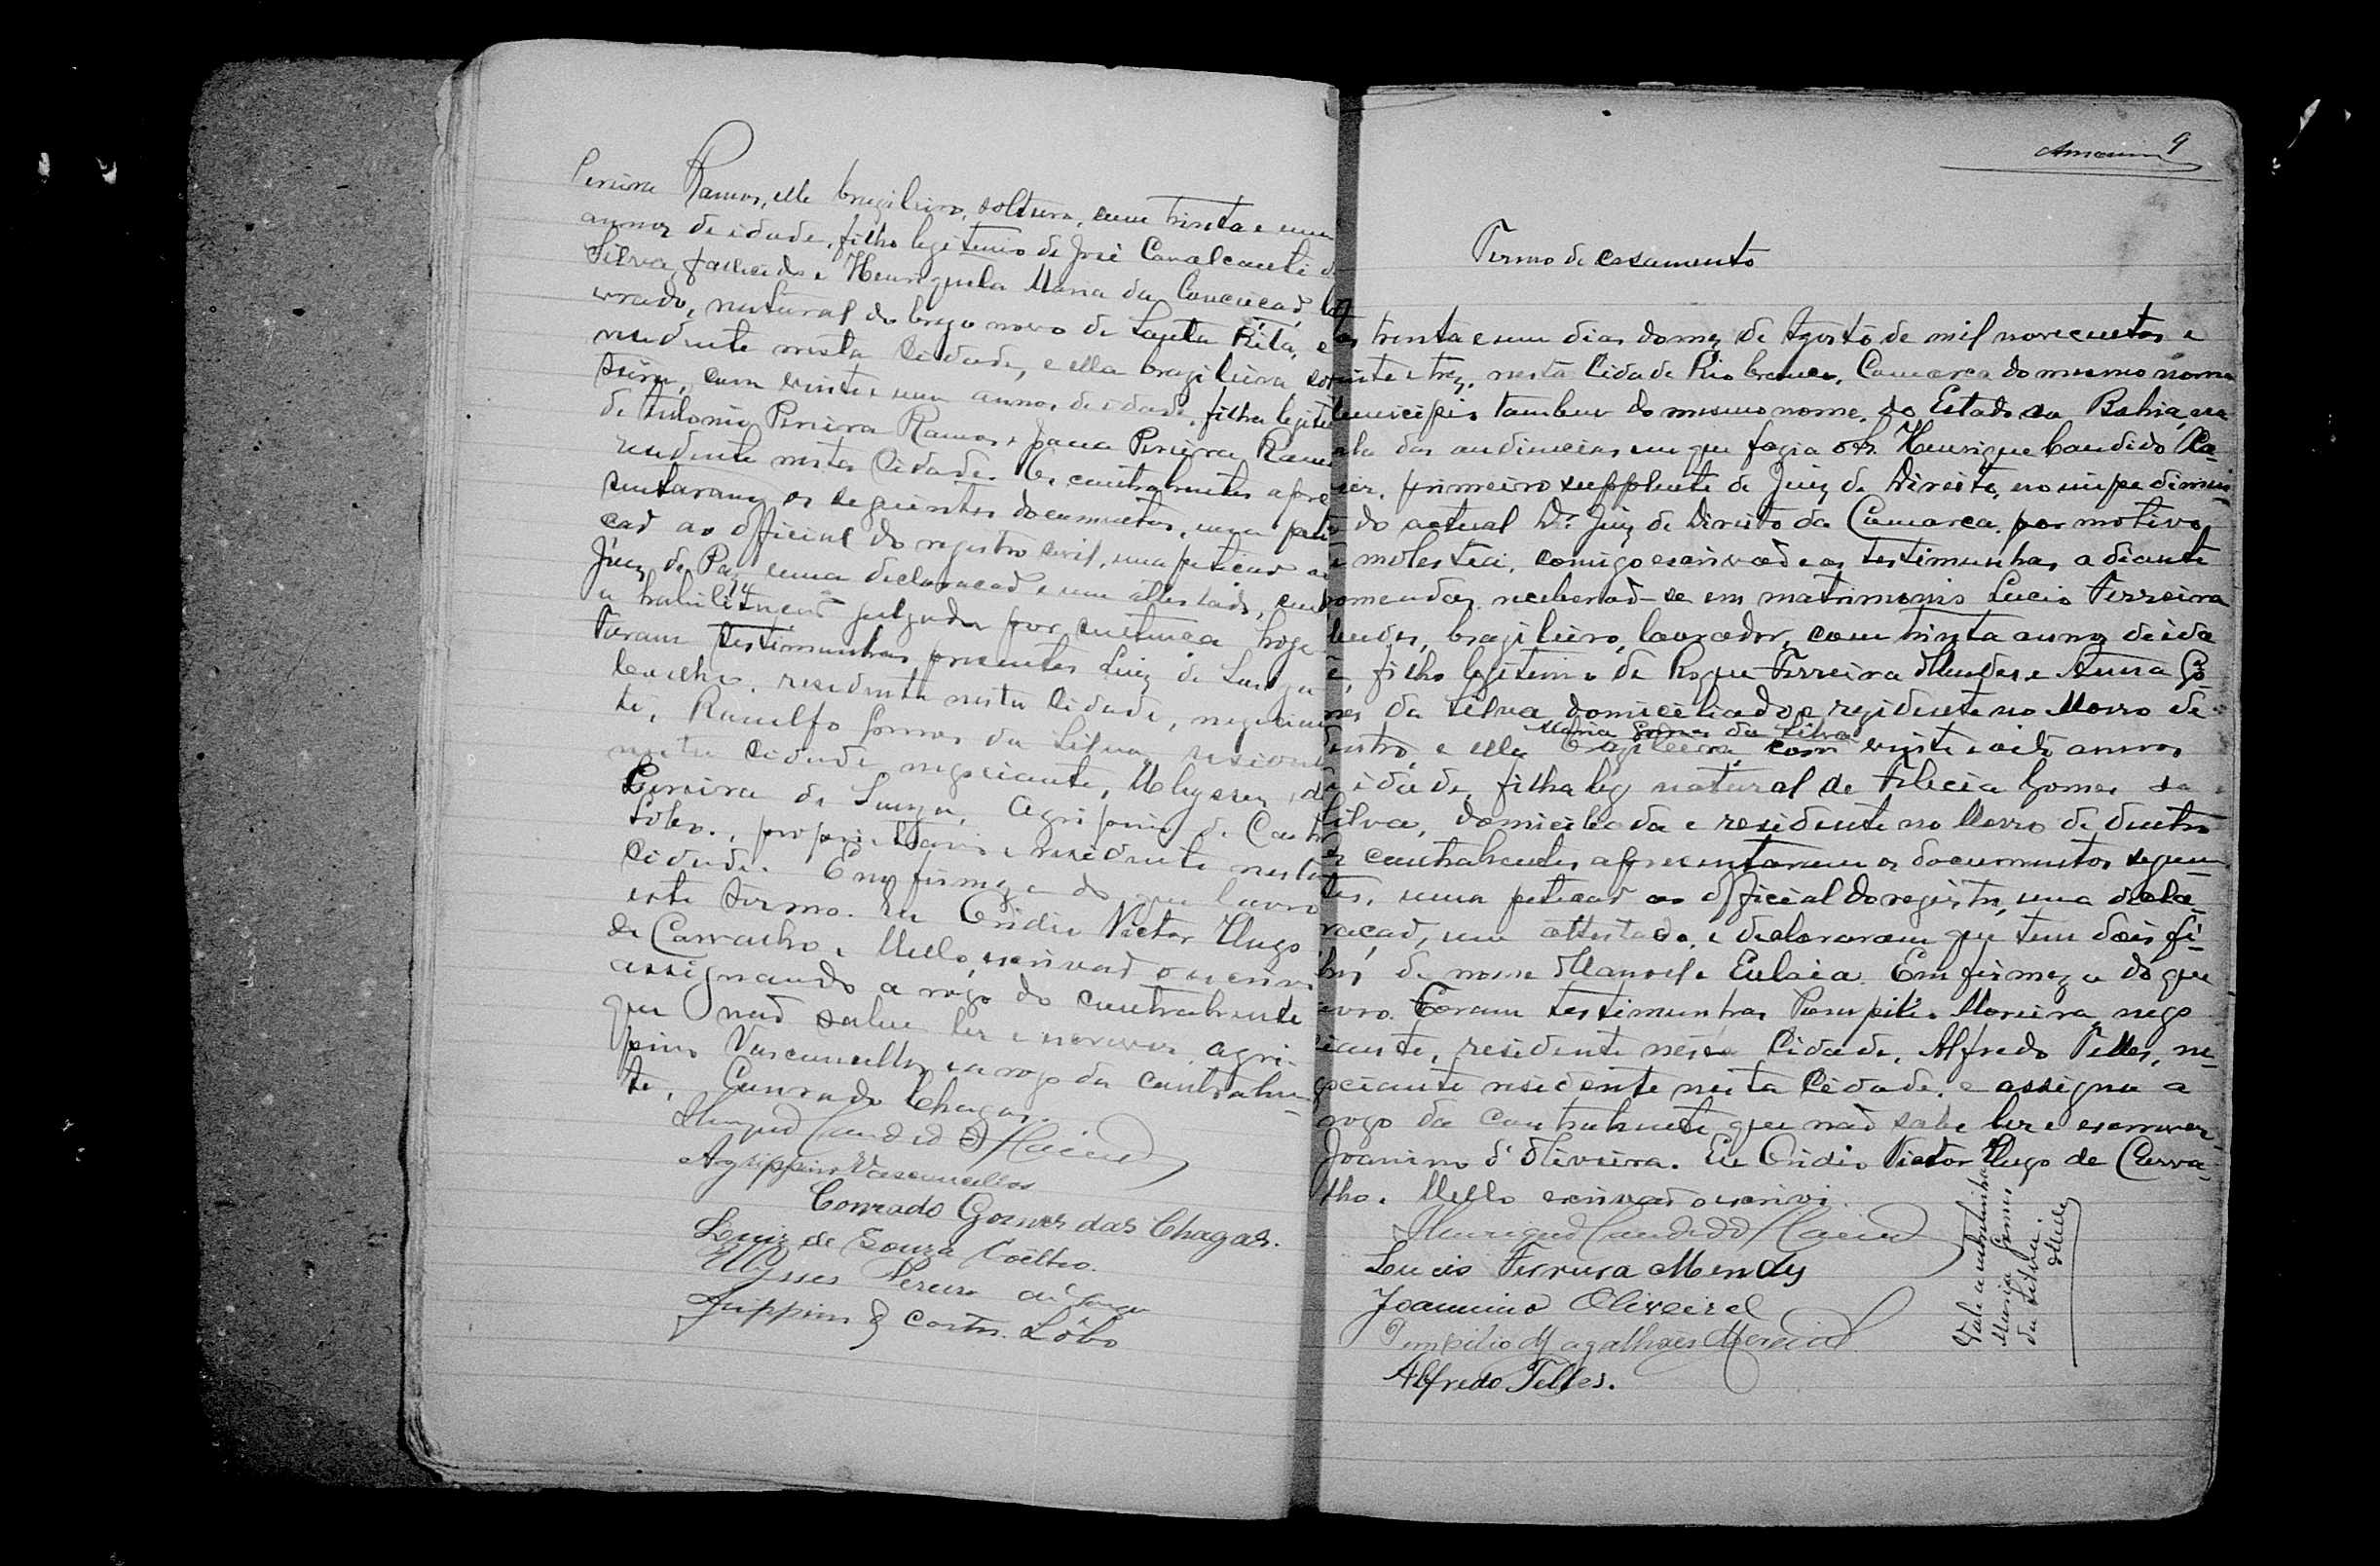 Pereira Ramos, elle brazileiro, solteiro, com trinta e um
annos de idade, filho legitimo de José Cavalcanti d
Silva, fallecido e Henriqueta Maria da Conceicaõ, la
vrado, natural do brejo novo de Santa Rita, e
residente nesta Cidade, e ella brazileira sol
teira, com vinte e um annos de idade, filha legiti
de Antonio Pereira Ramos e Joana Pereira Ramos
residente nesta Cidade. Os contrahentes apre
sentaram os seguintes documentos, uma peti
caõ ao official do registro civil, uma peticaõ ao
Juiz de Paz uma declaracaõ e um attestado, sendo
a habilitaçaõ julgada por sentença hoje
Foram testimunhas presentes Luiz de Souza
Coelho, residente nesta Cidade, negocian
te, Ranulfo Gomes da Silva, resident
nesta Cidade negociante, Ulysses
Pereira de Souza, Agripino de Castro
Lobo, proprietario e residente nesta
Cidade. Em firmeza do que lavro
este termo. Eu Ovidio Victor Hugo
de Carvalho e Mello, escrivaõ o escrivi
assignando a rogo do contrahente
que naõ sabe ler e escrever, Agri-
pino Vasconcellos e a rogo da contrahen-
te, Conrado Chagas.
Henrique Candido
Agrippino Vasconcellos
Conrado Gomes das Chagas.
Luiz de Souza Coêlho.
Ulysses Pereira de Souza
Agrippino de Castro Lôbo
9
Termo de casamento
os trinta e um dias do mez de Agosto de mil novecentos e
vinte e trez, nesta Cidade Rio branco, Comarca do mesmo nome
municipio tambem do mesmo nome, do Estado da Bahia, na
sala das audiencias em que fazia o Sr. Henrique Candido
primeiro supplente de Juiz de Direito, no impedimen-
do actual Dr. Juiz de Direito da Comarca, por motivo
e molestia, comigo escrivaõ e as testimunhas adiante
nomeadas receberaõ-se em matrimonio Lucio Ferreira
Mendes, brazileiro, lavrador, com trinta annos de ida
e, filho legitimo de Roque Ferreira Mendes e Anna Go-
mes da Silva domiciliado e rezidente no Morro de
Maria Gomes da Silva
dentro, e ella brazileira, com vinte e oito annos
de idade, filha leg natural de Felecia Gomes da
Silva, domiciliada e residente no Morro de dentro
os contrahentes apresentaram os documentos seguin-
tes, uma peticaõ ao official do registro, uma decla-
racaõ, um attestado, e declararam que tem dois fi-
lhos de nome Manoel e Eulaia. Em firmeza do que
lavro. Foram testimunhas Pompilio Moreira, nego
ciante, residente nesta Cidade, Alfredo Telles, ne-
gociante residente nesta Cidade, e assigna a
rogo da contrahente que naõ sabe ler e escrever
Joanino d'Oliveira. Eu Ovidio Victor Hugo de Carva-
lho e Mello escrivaõ o escrivi
Henrique Candido
Lucio Ferreira Mendes
Joannino Oliveira
Pompilio Magalhães Moreira
Alfredo Telles.
Vale a entrelinha
Maria Gomes
da Silva.
Mello